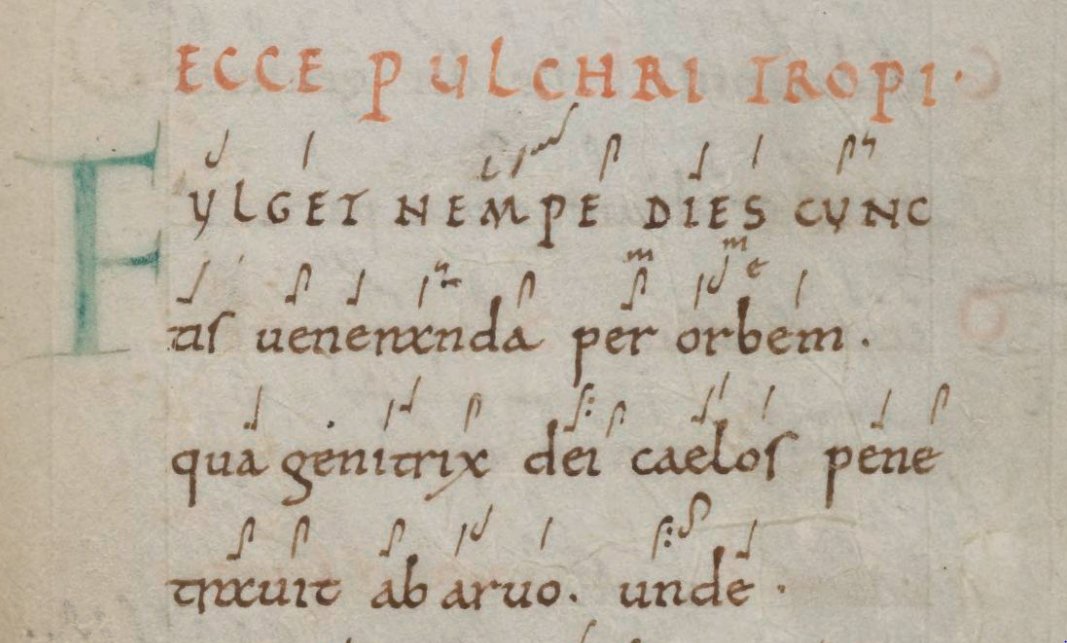 ECCE PULCHRI TROPI·
FYLGET NEMPE DIES CVNC
tis ueneranda per orbem.
qua genitrix dei caelos pene
trauit ab aruo. unde·